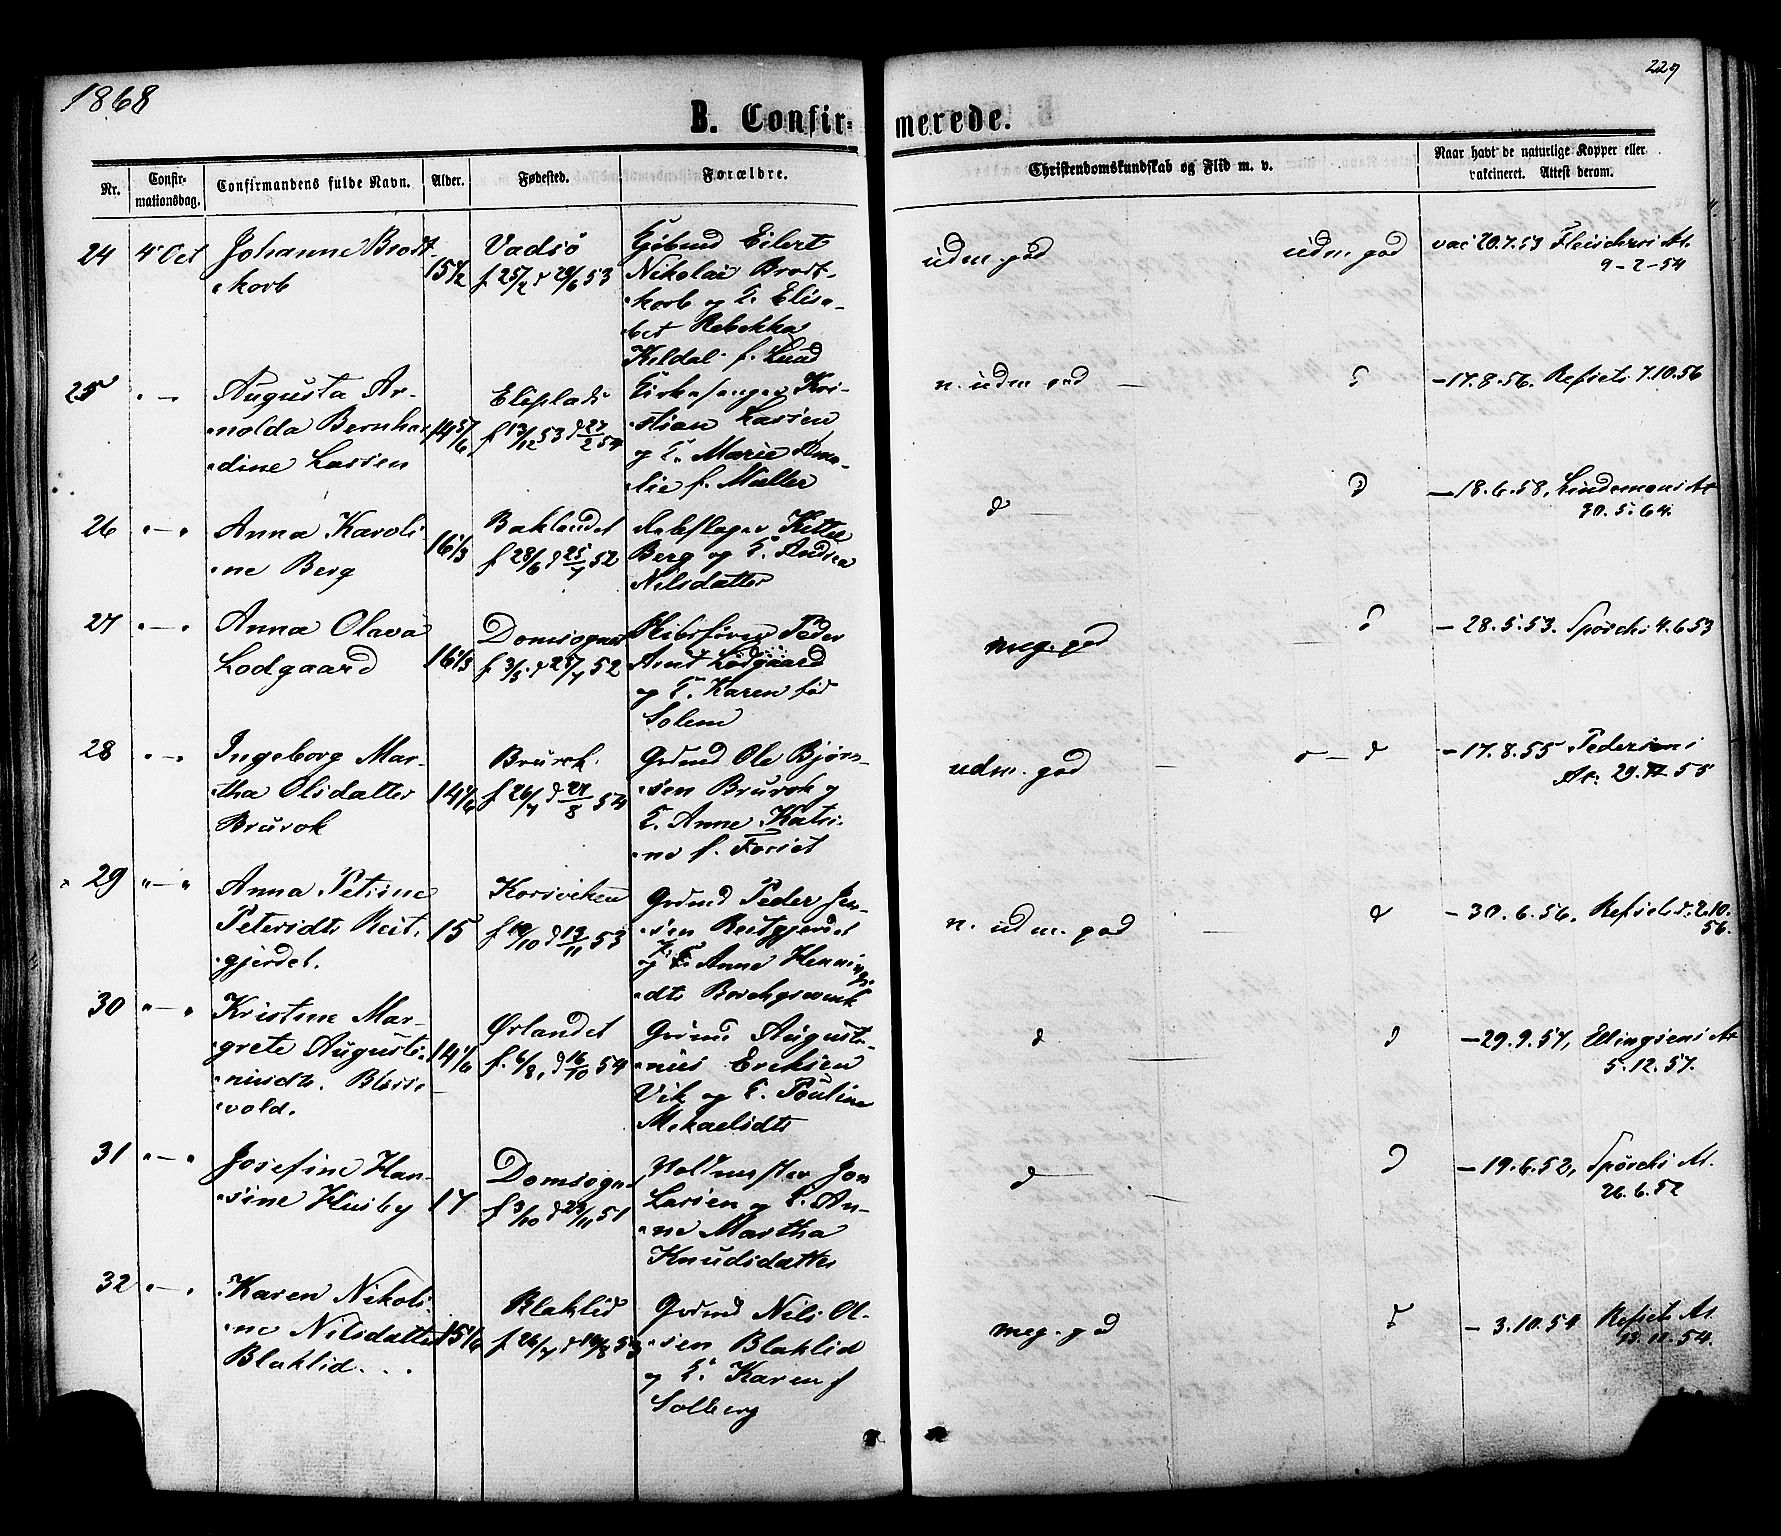 1868
229
B. Confirmerede.
Nr.
Confirmationsdag.
Confirmandens fulde Navn.
Alder.
Fødested.
Forældre.
Christendomskundskab og Flid m. v.
Naar havt de naturlige Kopper eller
vakcineret. Attest derom.
24 4 Oct Johanne Brodt-
korb
15 1/2
Vadsö
Eilert
Nikolai Brodt-
korb og E. Elisa-
bet Rebekka
Keldal f. Lund
udm. god
udm. god
vac 20.7.53
9-2-54
25 " — Augusta Ar-
nolda Bernhar-
dine Lassen
14 5/6
f 13/12 53 d 27/2 54
Kirkesanger Kri-
stian Lassen
og E. Marie Ama-
lie f. Møller
n. udm god
d
-17.8.56. Refsets 7.10.56
26 " — " Anna Karoli-
ne Berg
16 1/3
Baklandet
f 28/6 d 25/7 52
Rebslager Kittel
Berg og E. Andrea
Nilsdatter
d
d
-18.6.58, Lindemans At
30.5.64.
27 " — " Anna Olava
Lodgaard
16 1/3
Domsognet
f 3/5 d 25/7 52
Peder
Arnt Lodgaard
og E. Karen fød
Solem
meg. god
d
- 28.5.53. Spörcks 4.6.53
28 " — " Ingeborg Mar-
tha Olsdatter
Brurok
14 1/6
Brurok
f 26/7 d 27/8 54
Grdmd Ole Bjørn-
sen Brurok og
E. Anne Katri-
ne f. Forset
udm. god
d
-17.8.55 Pedersens
At.
29 " — " Anna Petrine
Petersdtr Reit-
gjerdet.
15
Korsviken
f 10/10 d 13/11 53
Grdmd Peder Jen-
sen Reitgjerdet
og E. Anne Hennings-
dtr
n. udm. god
d
- 30.6.56, Refsets 2.10.
56.
30 " — " Kristine Mar-
grete Augusti-
nusdtr.
vold.
14 1/6
Ørlandet
f. 6/8, d 16/10 54
Grdmd Augusti-
nus Eriksen
Vik og E. Pauline
Mikaelsdtr
d
d
-29.9.57, Ellingsens At
5.12.57.
31 " — " Josefine Han-
sine Husby
17
Domsogn.
f 3/10 d 23/11 51
Jon
Larsen og E. An-
ne Martha
Knudsdatter
d
d
-19.6.52, Spörcks At.
26.6.52
32 " — " Karen Nikoli-
ne Nilsdatter
Blaklid . . .
15 1/6
Blaklid
Grdmd Nils Ol-
sen Blaklid
og E. Karen f
Solberg
meg. god
d
- 3.10.54 Refsets At.
13.11.54.